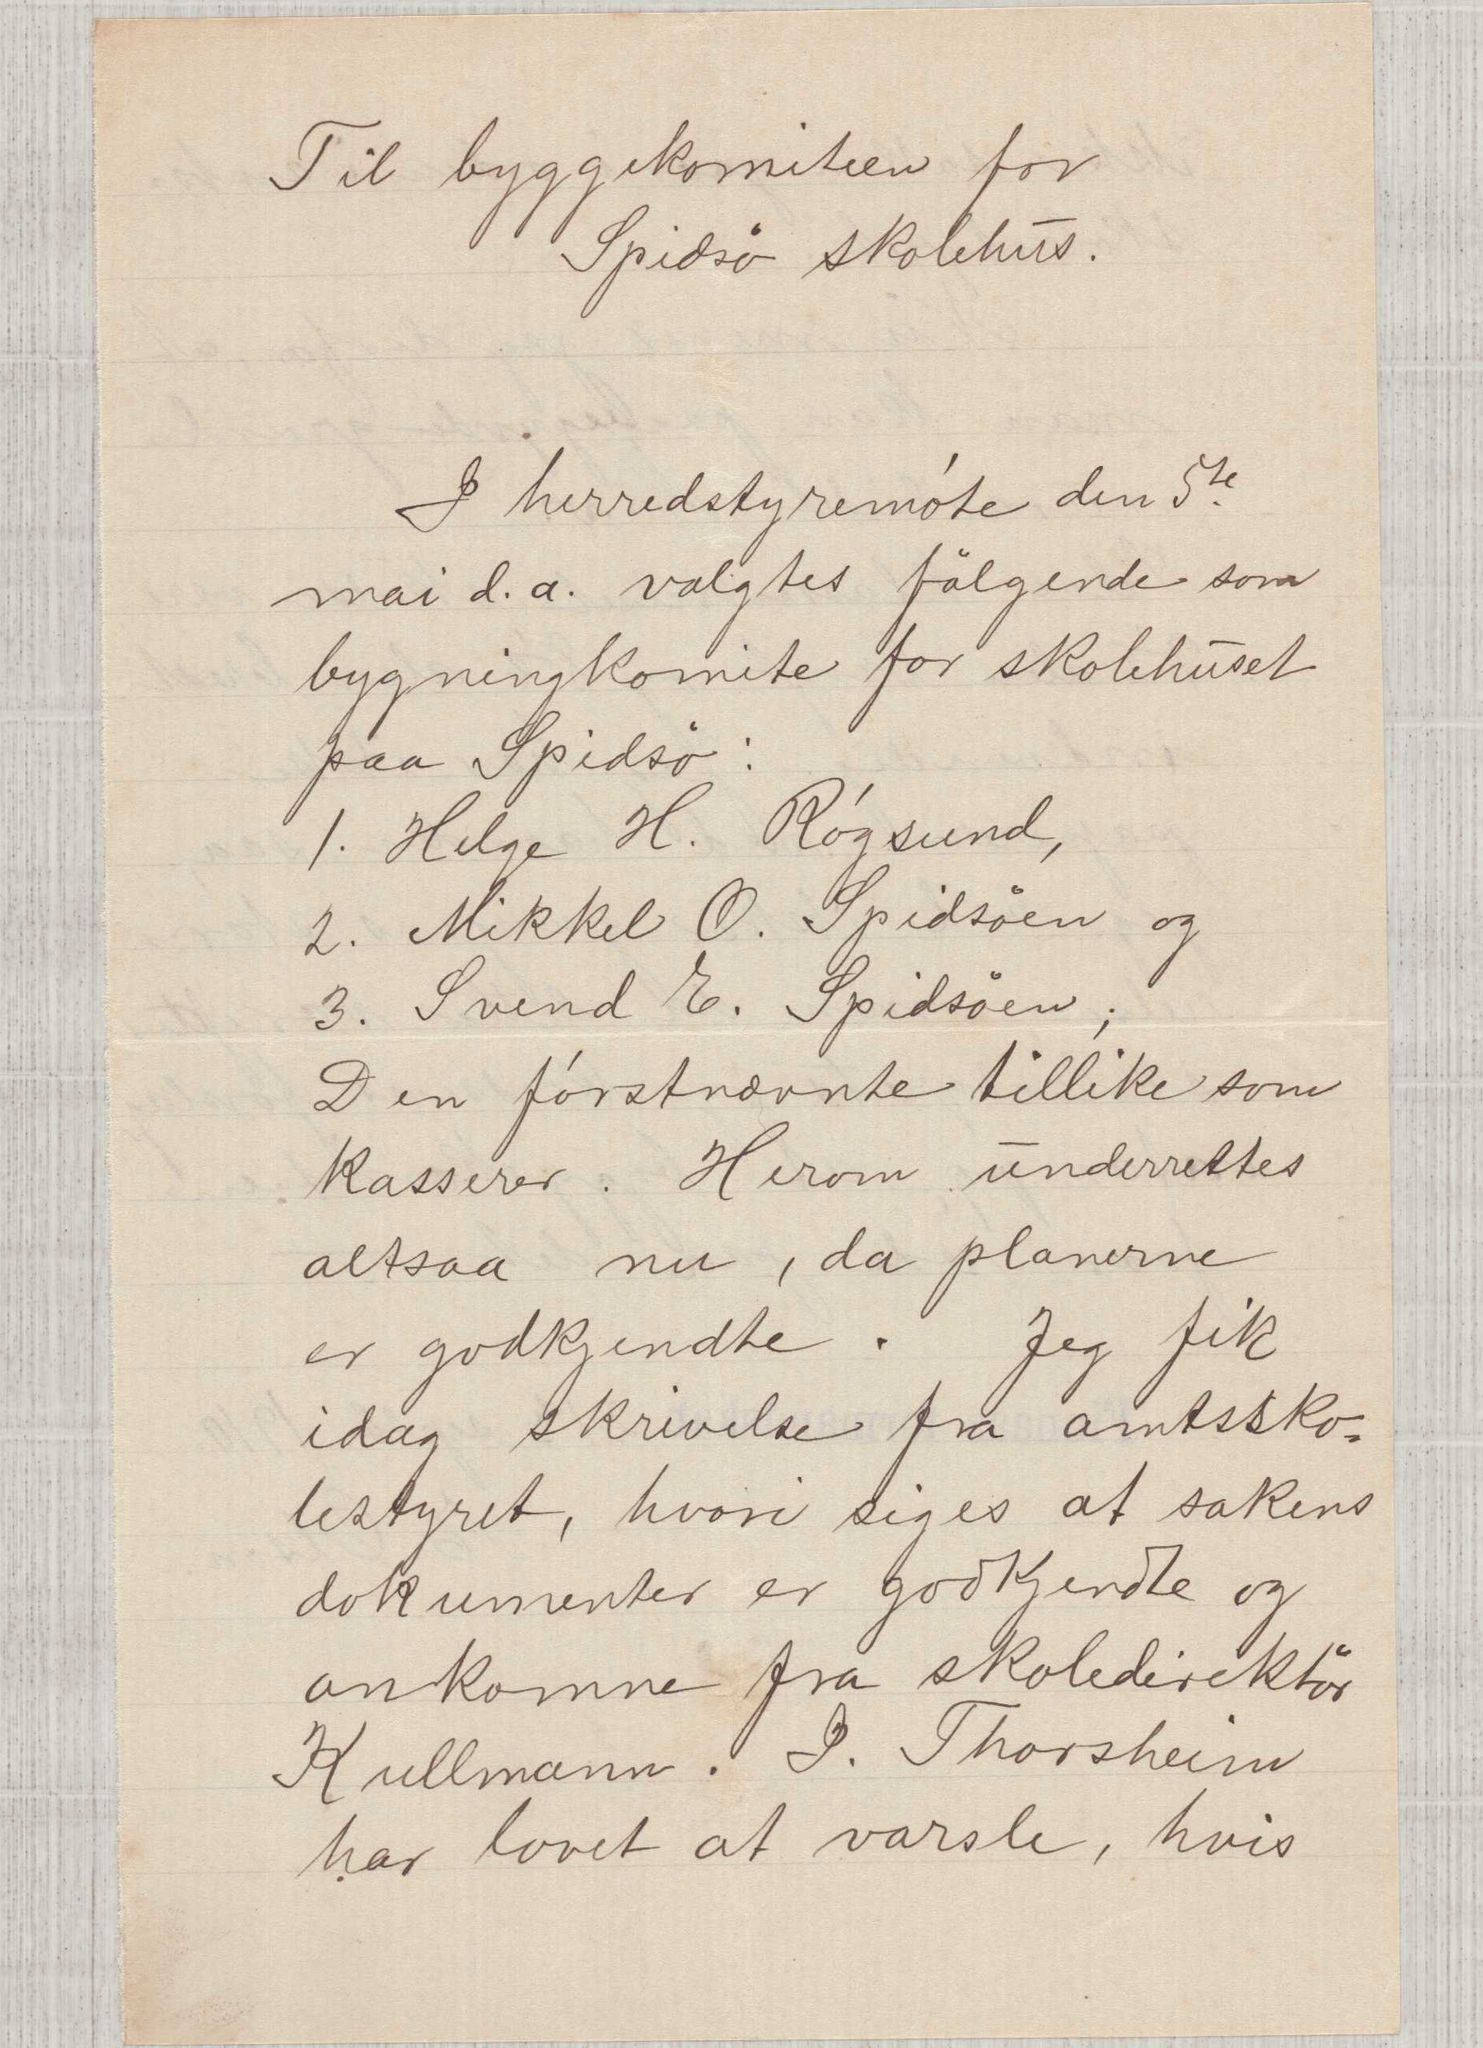 Til byggekomiteen for
Spidsö skolehus.
I herredstyremóte den 5te
mai d. a. valgtes fölgende som
bygningkomite for skolehuset
paa Spidsö:
1. Helge H. Rógsund,
2. Mikkel O. Spidsöen og
3. Svend E. Spidsöen;
Den fórstnævnte tillike som
kasserer. Herom underrettes
altsaa nu, da planerne
er godkjendte. Jeg fik
idag skrivelse fra amtssko-
lestyret, hvori siges at sakens
dokumenter er godkjendte og
ankomne fra skoledirektör
Kullmann. I. Thorsheim
har lovet at varsle, hvis